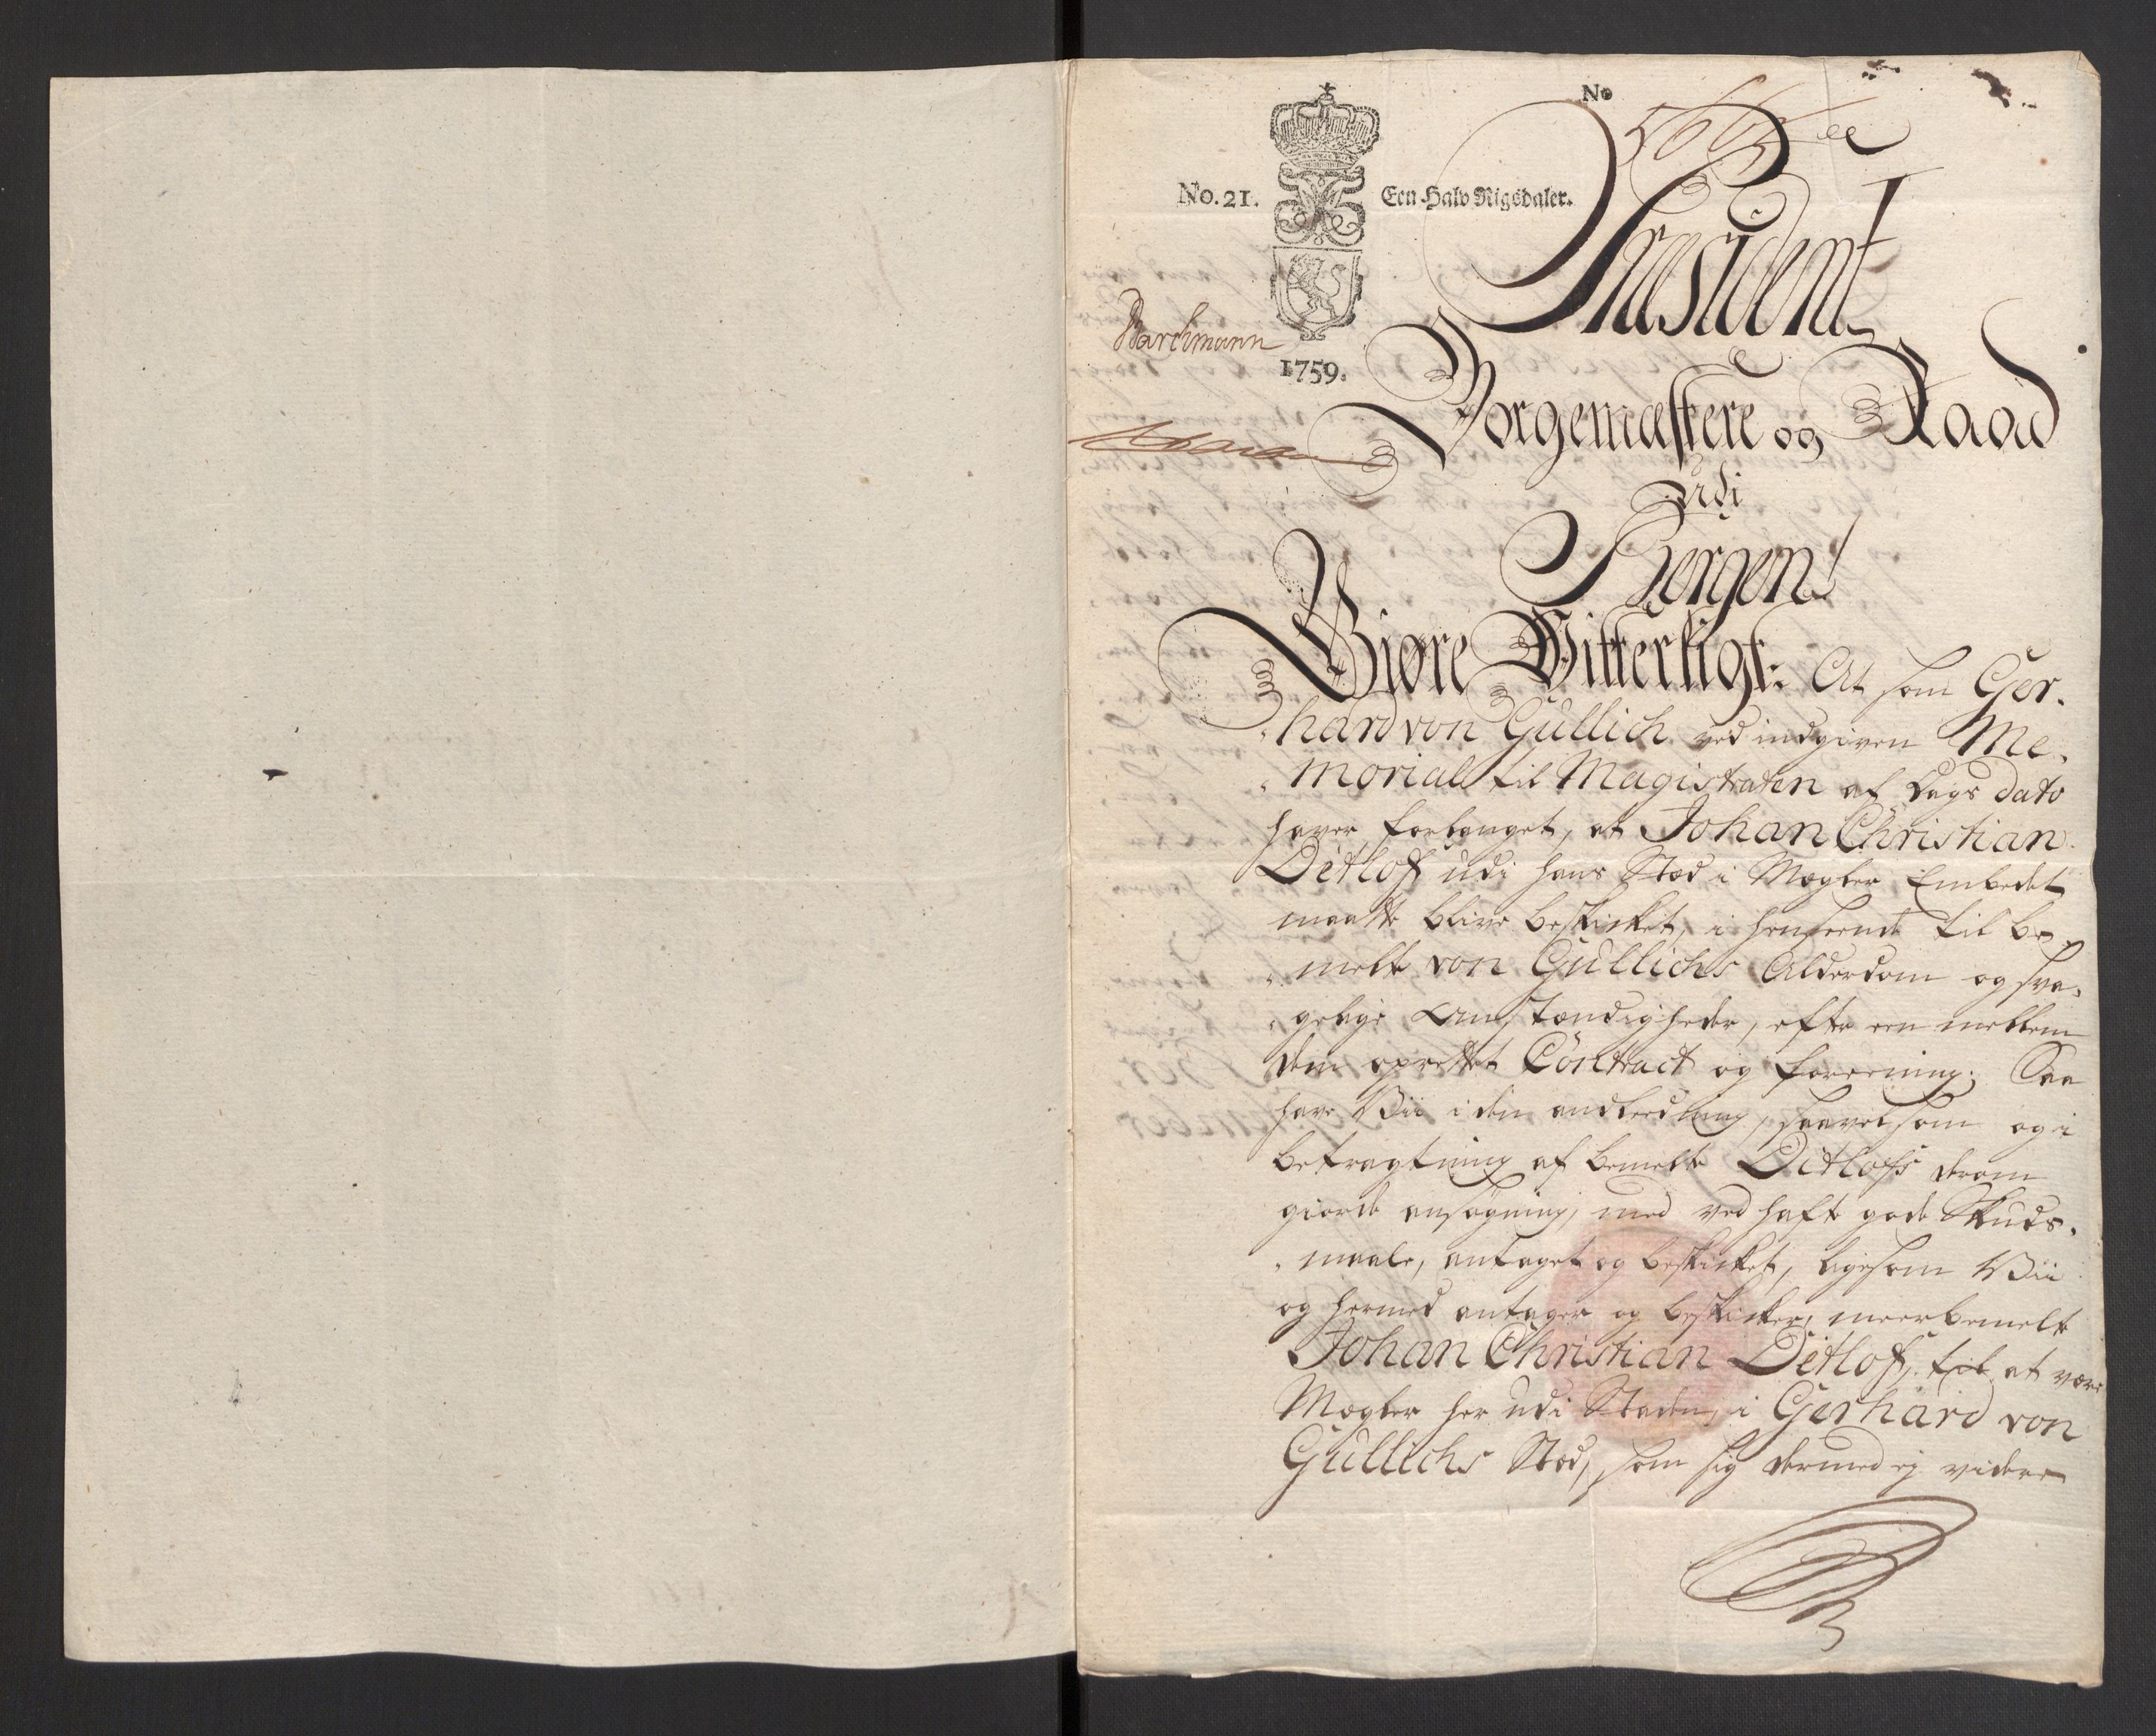 No
No. 21. Een Halv Rigsdaler.
Præsident
Barchmann
1759.
Borgemæstere og Raad
udi
Bergen
Giøre Vitterligt: At som Ger-
hard von Güllich ved indgiven Me-
morial til Magistraten af Dags dato
haver forlanget, at Johan Christian
Ditlof udi hans Stæd i Mægler Embedet
maatte blive beskikket, i henseende til be-
melte von Güllichs Alderdom og sva-
gelige Omstændigheder, efter een mellem
dem oprettet Contract og foreening; Saa
have Vii i den andleedning, saavelsom og i
betragtning af bemelte Ditlofs derom
giorde ansøgning, med ved hæfte gode Skuds-
maale, antaget og beskikket, ligesom Vii
og hermed antager og beskikker, meerbemelte
Johan Christian Ditlof, til at være
Mægler her udi Staden, i Gerhard von
Güllichs Stæd, som sig dermed ej videre